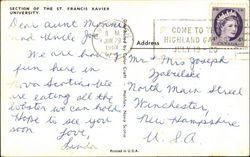 SECTION OF THE ST. FRANCIS XAVIER
UNIVERSITY.
Dear Aunt Minnie
and Uncle Joe
We are having
fun here in
Nova Scotia. We
are eating all the
lobster we can hold.
Hope to see you
soon
Love,
Linda
COME TO THE
HIGHLAND GAMES
JULY
Address
Mr & Mrs Joseph
North Main Street
Winchester,
New Hampshire
U.S.A
PRINTED IN U.S.A.